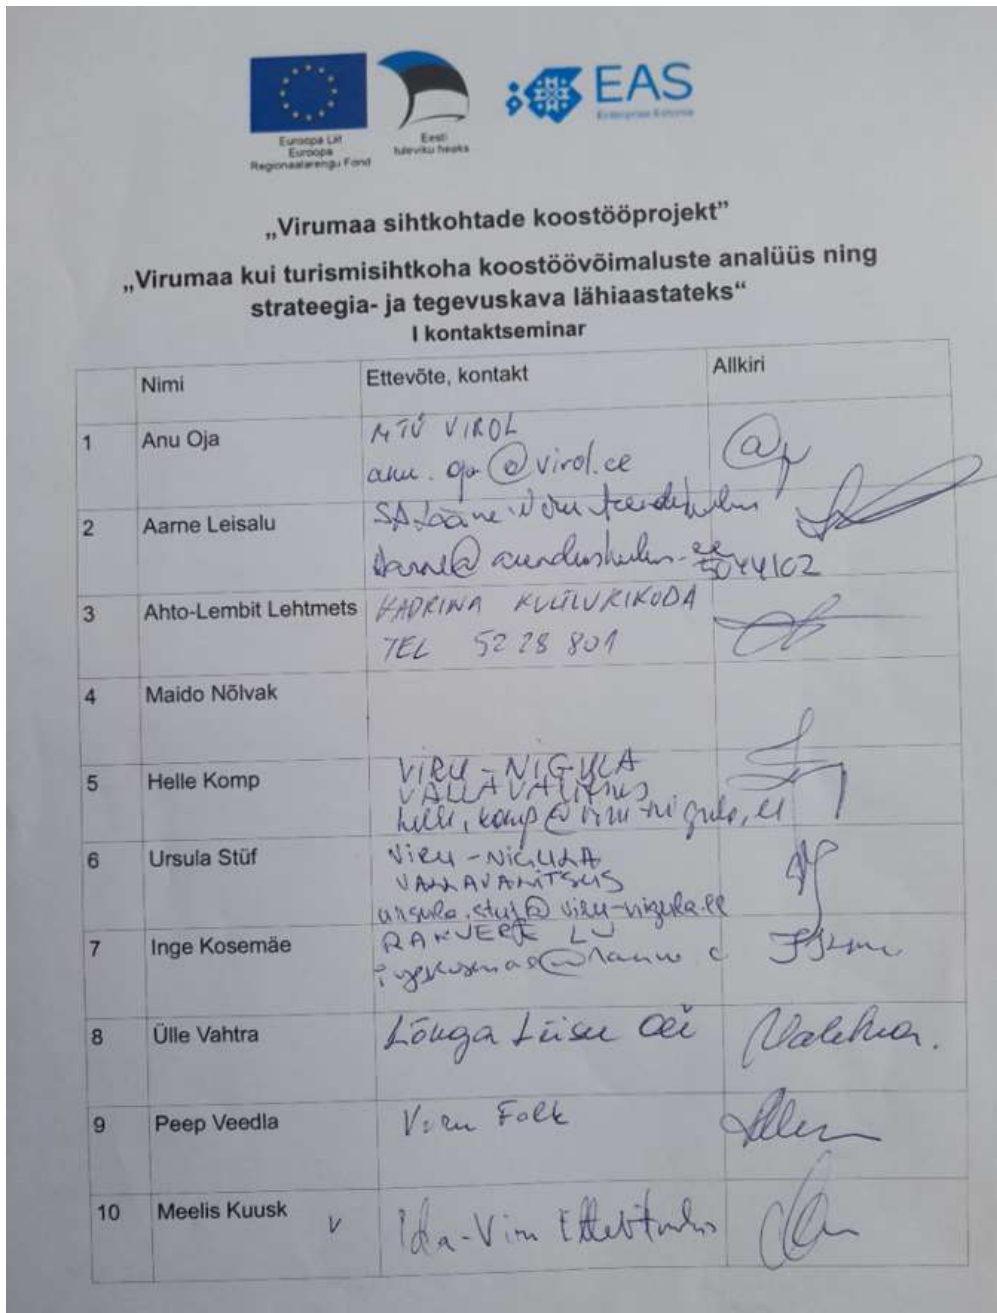 Euroopa Liit
Euroopa
Regionaalarengu Fond
Eesti
tuleviku heaks
EAS
Enterprise Estonia
„Virumaa sihtkohtade koostööprojekt”
„Virumaa kui turismisihtkoha koostöövõimaluste analüüs ning
strateegia- ja tegevuskava lähiaastateks“
I kontaktseminar
Nimi Ettevõte, kontakt Allkiri
1 Anu Oja MTÜ VIROL
@virol.ee
2 Aarne Leisalu SA Lääne-Viru
3 Ahto-Lembit Lehtmets KADRINA
TEL 52 28 801
4 Maido Nõlvak
5 Helle Komp VIRU-NIGULA
VALLAVALITSUS
6 Ursula Stüf VIRU-NIGULA
VALLAVALITSUS
ursula.stuf@viru-nigula.ee
7 Inge Kosemäe RAKVERE LV
8 Ülle Vahtra Lõuga Liisu OÜ
9 Peep Veedla Viru Folk
10 Meelis Kuusk v Ida-Viru